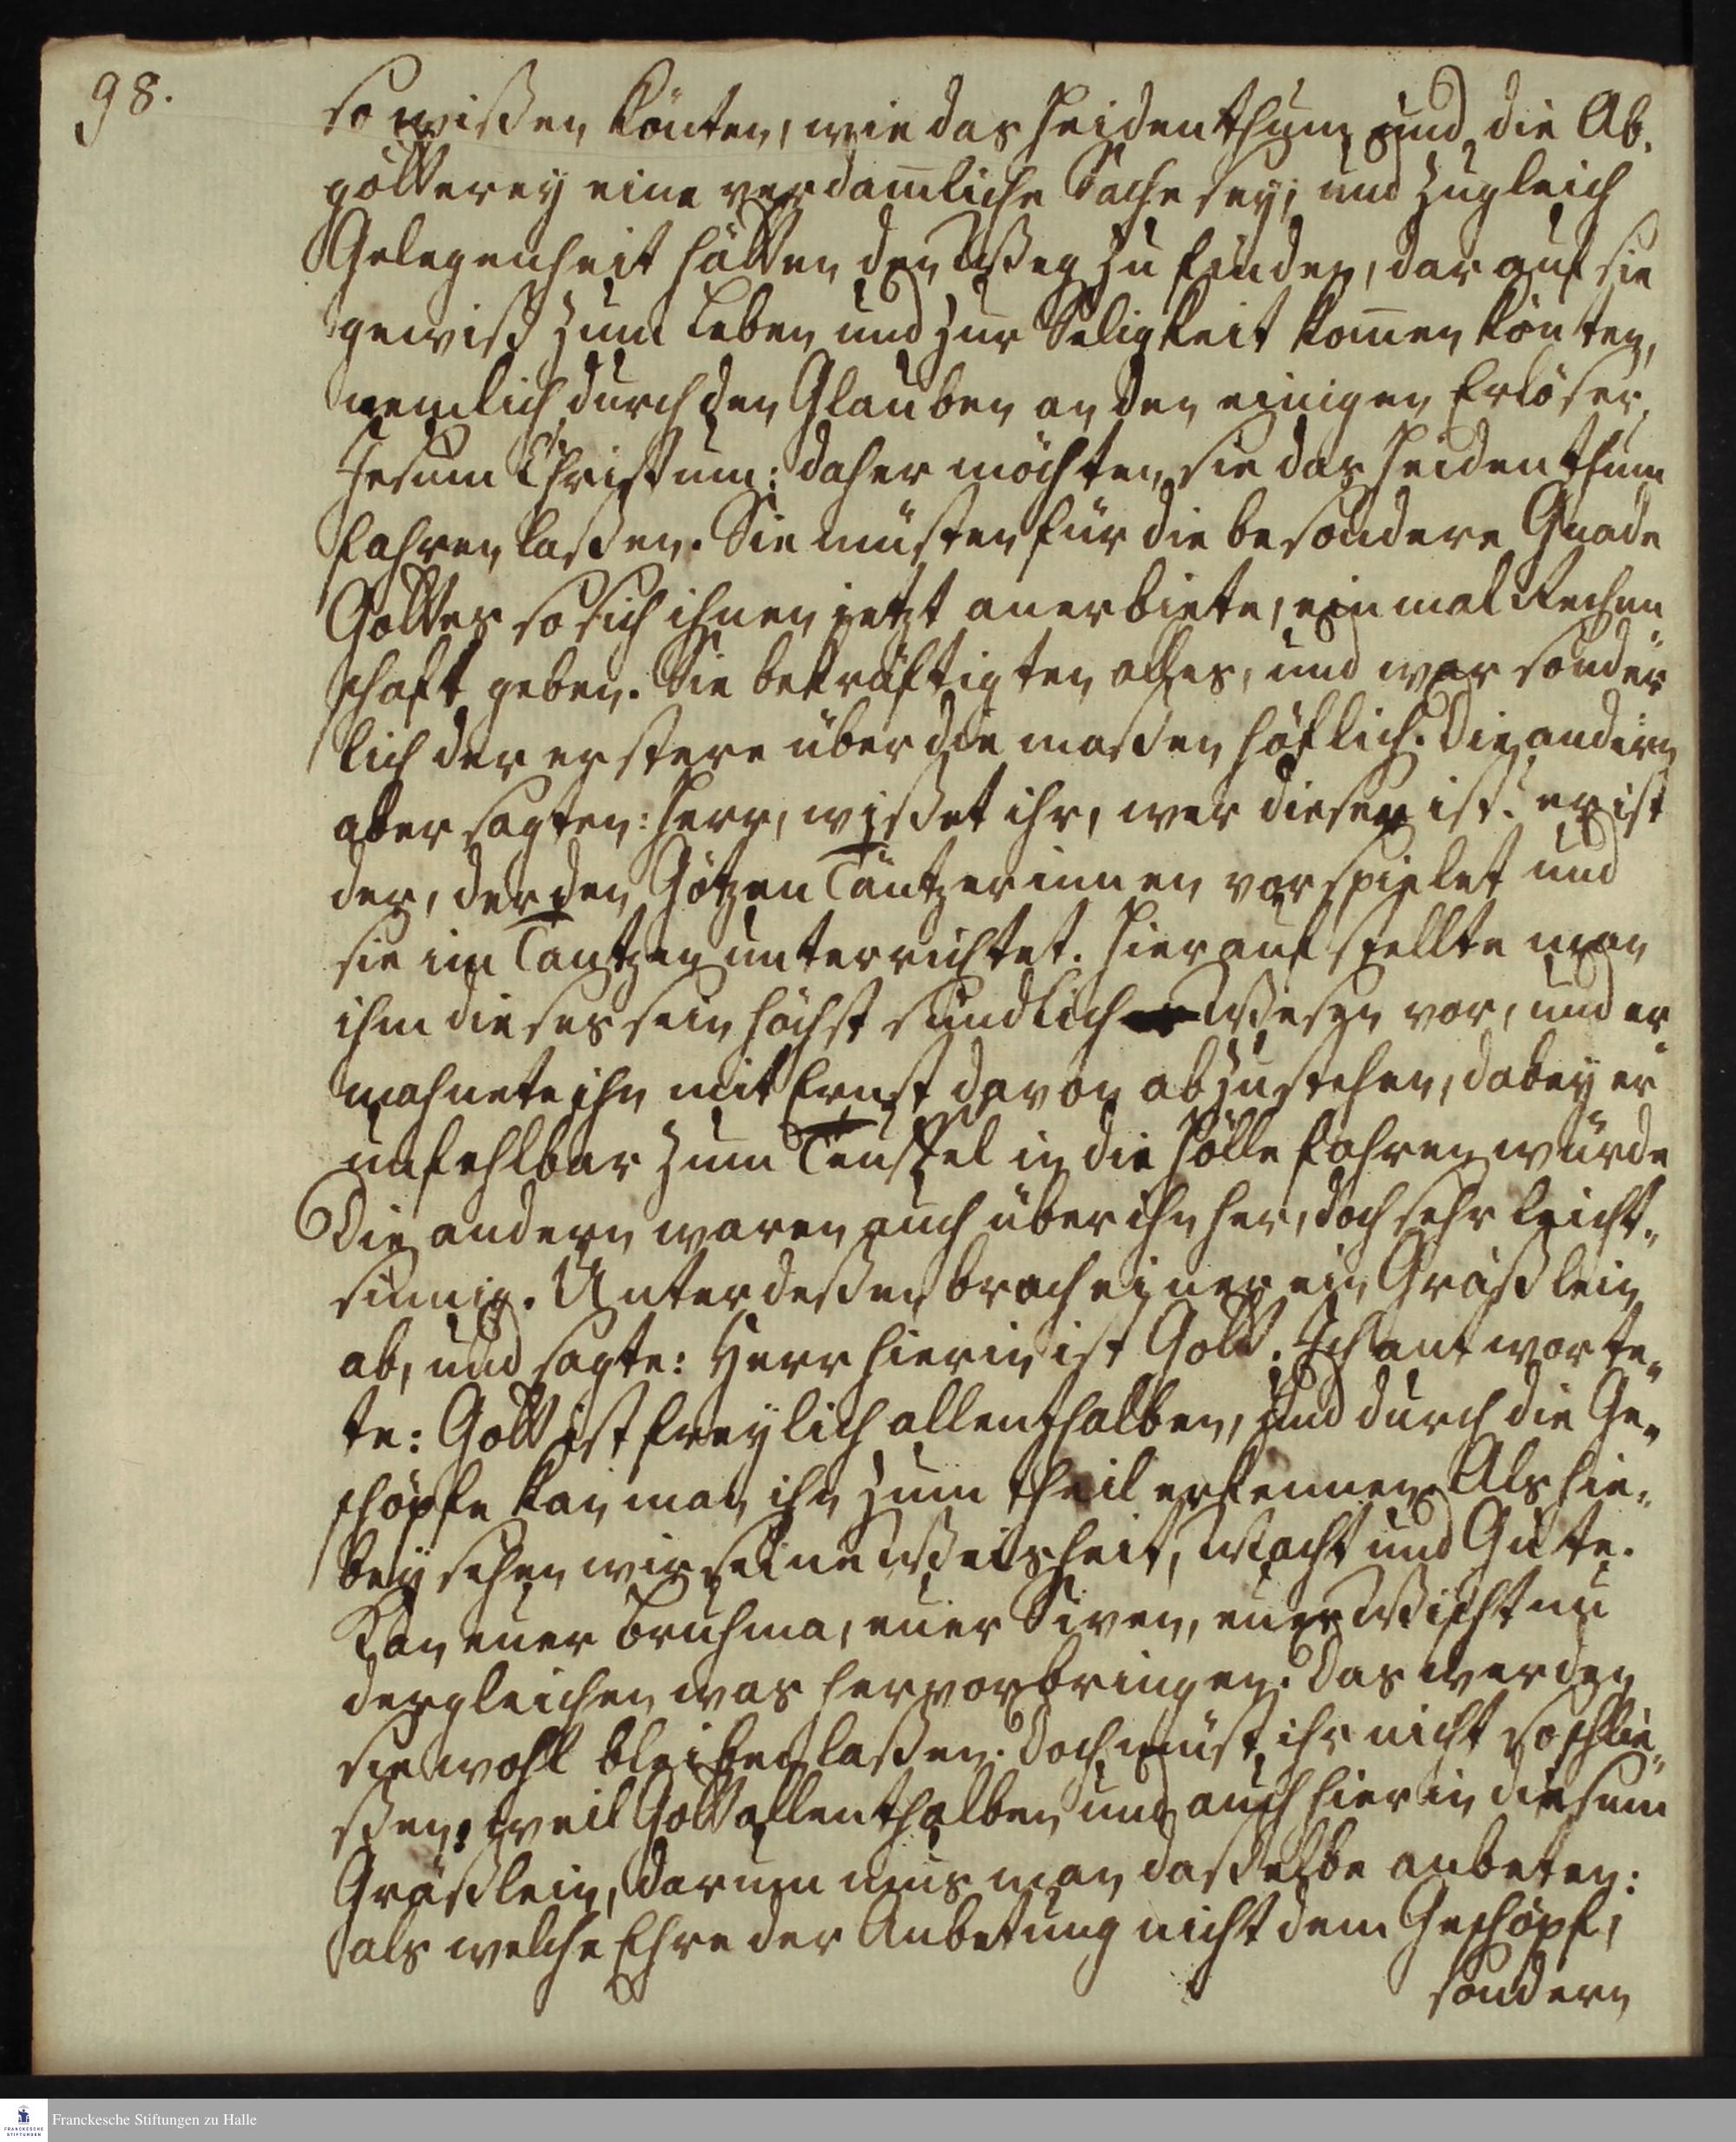 98.
so wißen könten, wie das Heidenthum und die Ab-
götterey eine verdam̄liche Sache sey; und zugleich
Gelegenheit hätten den Weg zu finden, darauf sie
gewiß zum Leben und zur Seligkeit kom̄en könten,
nemlich durch den Glauben an den einigen Erlöser,
Jesum Christum: daher möchten sie das Heidenthum
fahren laßen. Sie müsten für die besondere Gnade
Gottes so sich ihnen jetzt anerbiete, einmal Rechen
schaft geben. Sie bekräftigten alles, und war sonder
lich der erstere über die maßen höflich. Die andern
aber sagten: Herr, wißet ihr, wer dieser ist? er ist
der, der den Götzen Täntzerinnen vorspielet und
sie im Tantzen unterrichtet. Hierauf stellte man
ihm dieses sein höchst sündlich Wesen vor, und er
mahnete ihn mit Ernst davon abzustehen, dabey er
unfehlbar zum Teuffel in die Hölle fahren würde
Die andern waren auch über ihn her, doch sehr leicht-
sinnig. Unterdeßen brach einer ein Gräßlein
ab, und sagte: Herr hierin ist Gott. Ich antworte-
te: Gott ist freylich allenthalben, und durch die Ge-
schöpfe kan man ihn zum theil erkennen. Als hie-
bey sehen wir seine Weisheit, Macht und Güte.
Kan euer Bruhma, euer Siven, euer Wischtnu
dergleichen was hervorbringen? Das werden
sie wohl bleiben laßen. Doch müst ihr nicht so schlie-
ßen: weil Gott allenthalben und auch hier in diesem
Gräßlein, darum mus man daßelbe anbeten:
als welche Ehre der Anbetung nicht dem Geschöpf,
sondern
Franckesche Stiftungen zu Halle
FRANCKESCHE
STIFTUNGEN